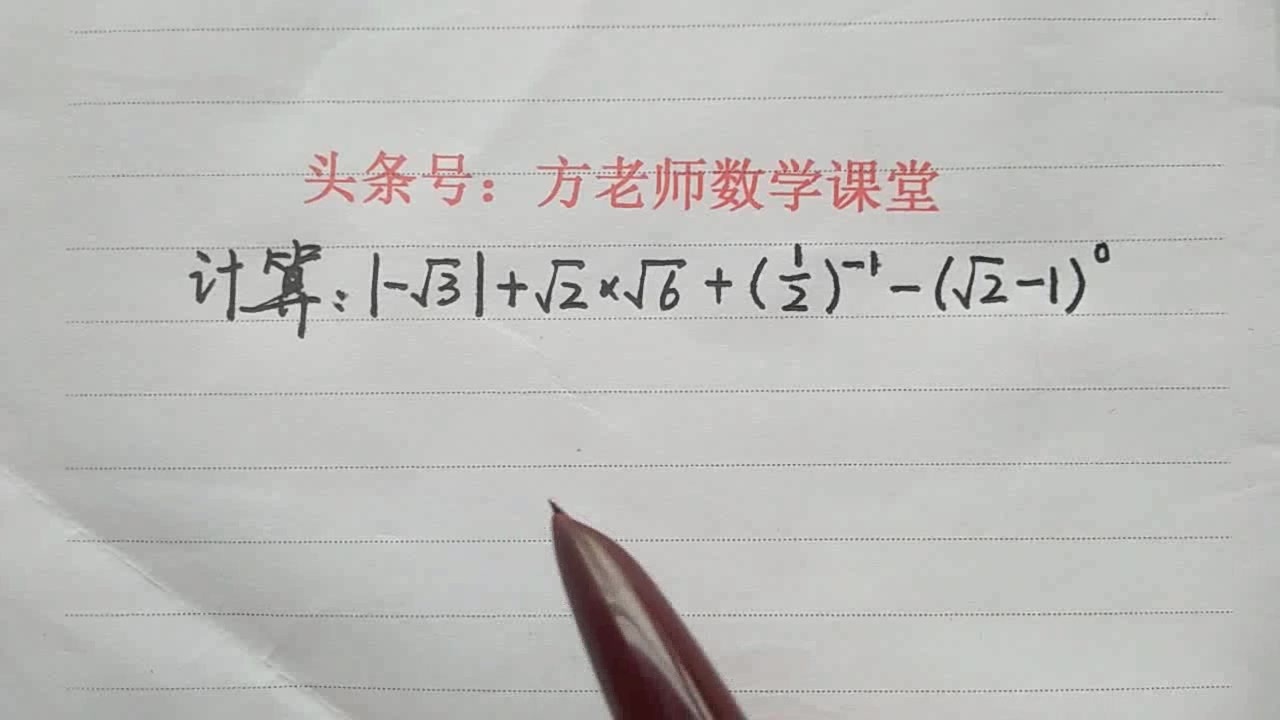 头条号：方老师数学课堂
计算：|-√3|+√2×√6+(1/2)⁻¹-(√2-1)⁰